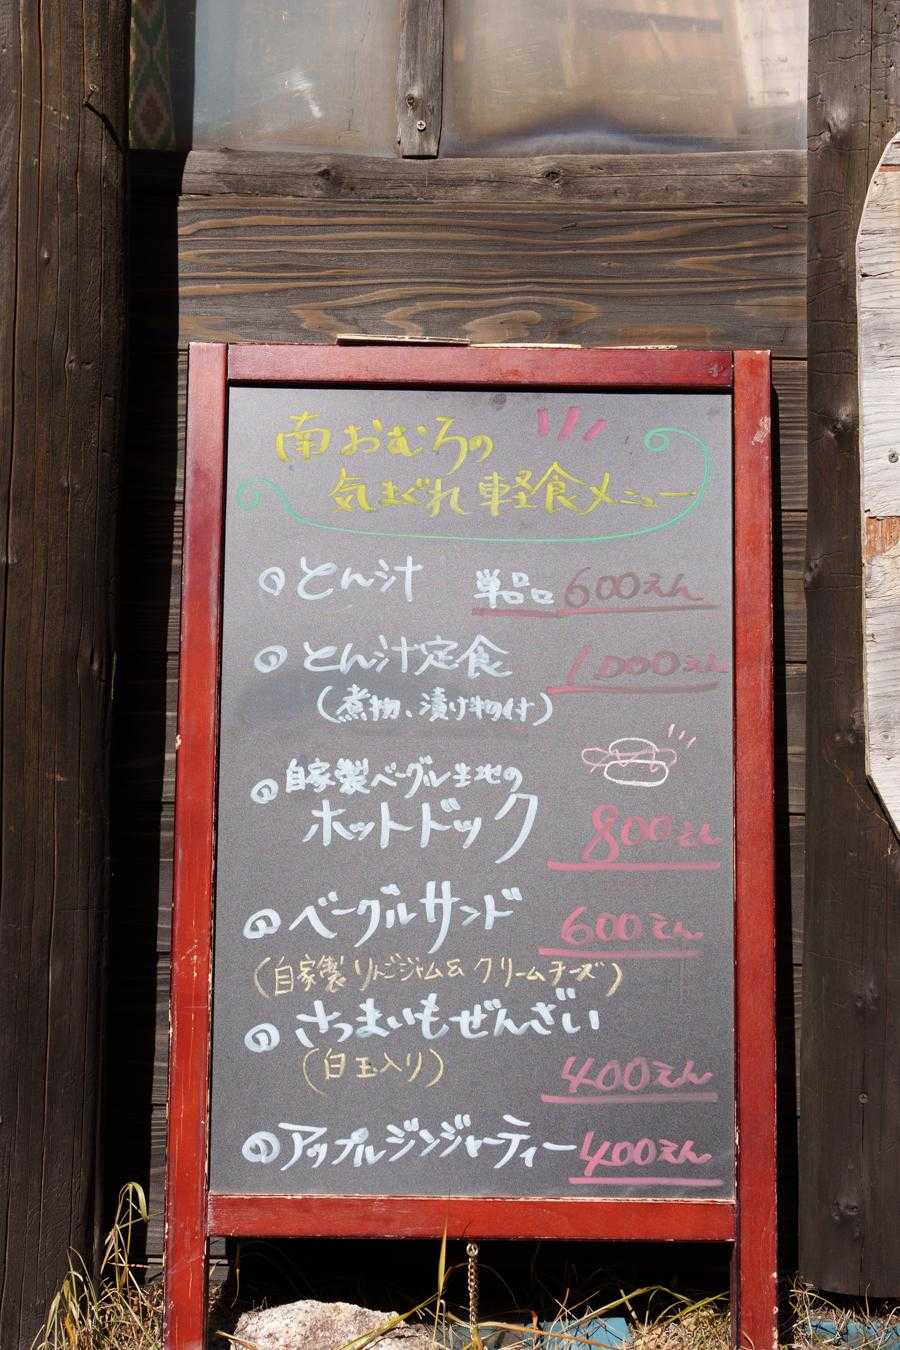 南おむろの
気まぐれ 軽食メニュー
とん汁 単品 600えん
とん汁定食 1,000えん
(煮物、漬け物付)
自家製ベーグル生地の
ホットドック 800えん
ベーグルサンド 600えん
(自家製 りんごジャム& クリームチーズ)
さつまいもぜんざい
(白玉入り) 400えん
アップルジンジャーティー 400えん